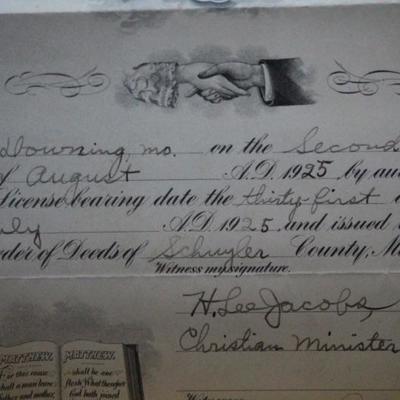 Downing, Mo. on the Second
of August A.D. 1925, by au
License bearing date the thirty-first
uly A.D. 1925 and issued
order of Deeds of Schuyler County, M
Witness my signature.
H. Lee Jacobs,
Christian Minister
MATTHEW. MATTHEW.
For this cause shall be one
shall a man leave flesh. What therefore
father and mother, God hath joined